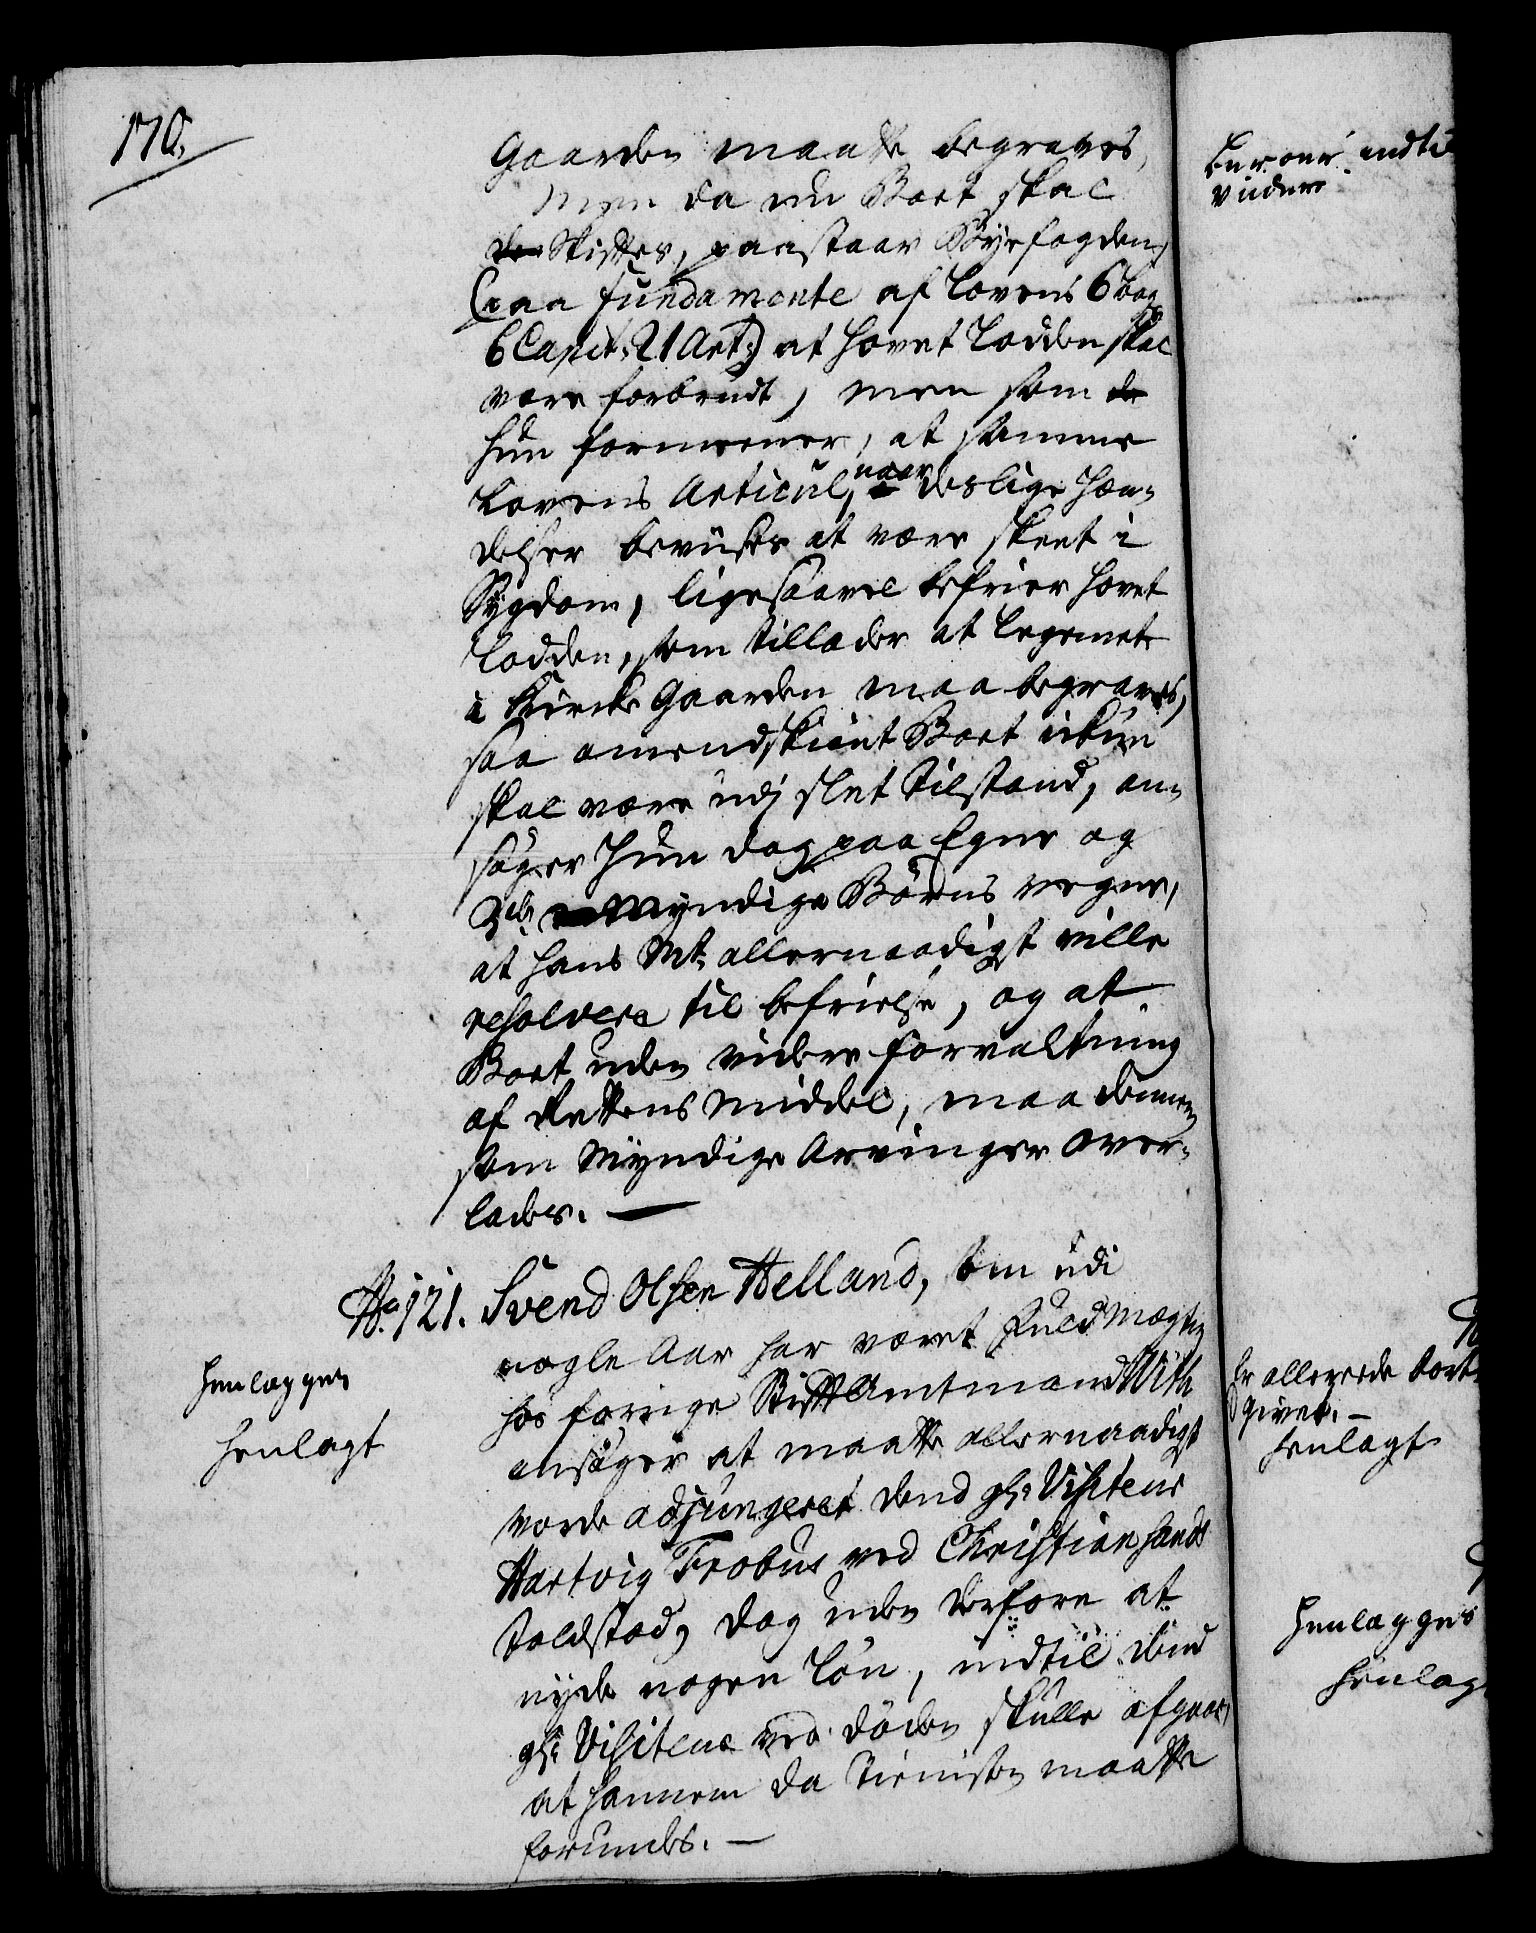 170.
Gaarden maatte begraves,
Men da nu Boet skal
de Skiftes, paastaar Byefogden,
(:paa fundamente af Lovens 6 bog
6 Capit: 21 Art:) at hovet Lodden skal
være forbrudt, men som de
hun formeener, at samme
Lovens Articul, naar deslige Hæn-
delser beviises at være skeet i
Sygdom, ligesaavel befrier hovet
Lodden, som tillader at legemet
i Kirke Gaarden maa begraves,
saa omendskiønt Boet ickun
skal være udj slet tilstand, an-
søger Hun dog paa Egne og
Myndige Børns vegne,
at hans Mt: allernaadigst ville
resolvere til befrielse, og at
Boet uden videre forvaltning
af Rettens Middel, maa dennem
som Myndige Arvinger over-
lades. —
No. 121. Svend Olsen Helland, som udi
nogle Aar har været Fuldmægtig
hos forrige Stift Amtmand With
ansøger at maatte allernaadigst
vorde adjungeret dend gl: Visiteur
Hartvig Frobus ved Christiansands
Toldsted, dog uden derfore at
nyde nogen Løn, indtil dend
gl: Visiteur ved døden skulle afgaae,
at hannem da Tienisten maatte
forundes. —
henlægges
henlagt
indtil
viidere
Er allerede bort
givet. —
henlagt
Henlægges
henlag